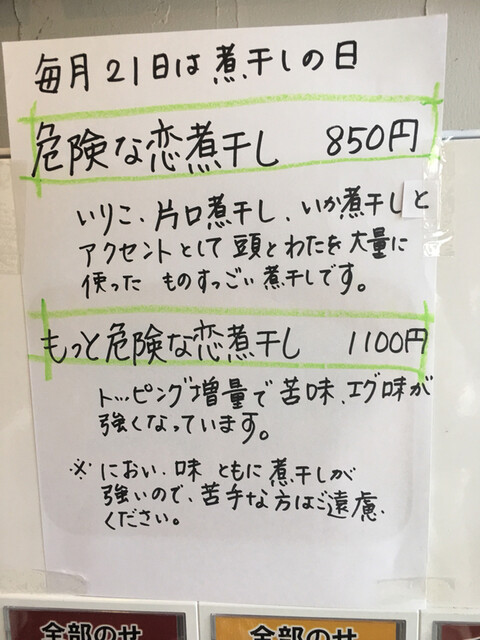 毎月21日は煮干しの日
危険な恋煮干し 850円
いりこ、片口煮干し、いか煮干しと
アクセントとして頭とわたを大量に
使った ものすっごい煮干しです。
もっと危険な恋煮干し 1100円
トッピング増量で苦味、エグ味が
強くなっています。
※ におい、味 ともに煮干しが
強いので、苦手な方はご遠慮
ください。
全部のせ 全部のせ